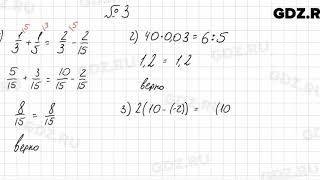 GDZ.RU
№ 3
1/3 + 1/5 = 2/3 - 2/15
5/15 + 3/15 = 10/15 - 2/15
8/15 = 8/15
верно
2) 40·0,03 = 6:5
1,2 = 1,2
верно
3) 2(10-(-2)) = (10